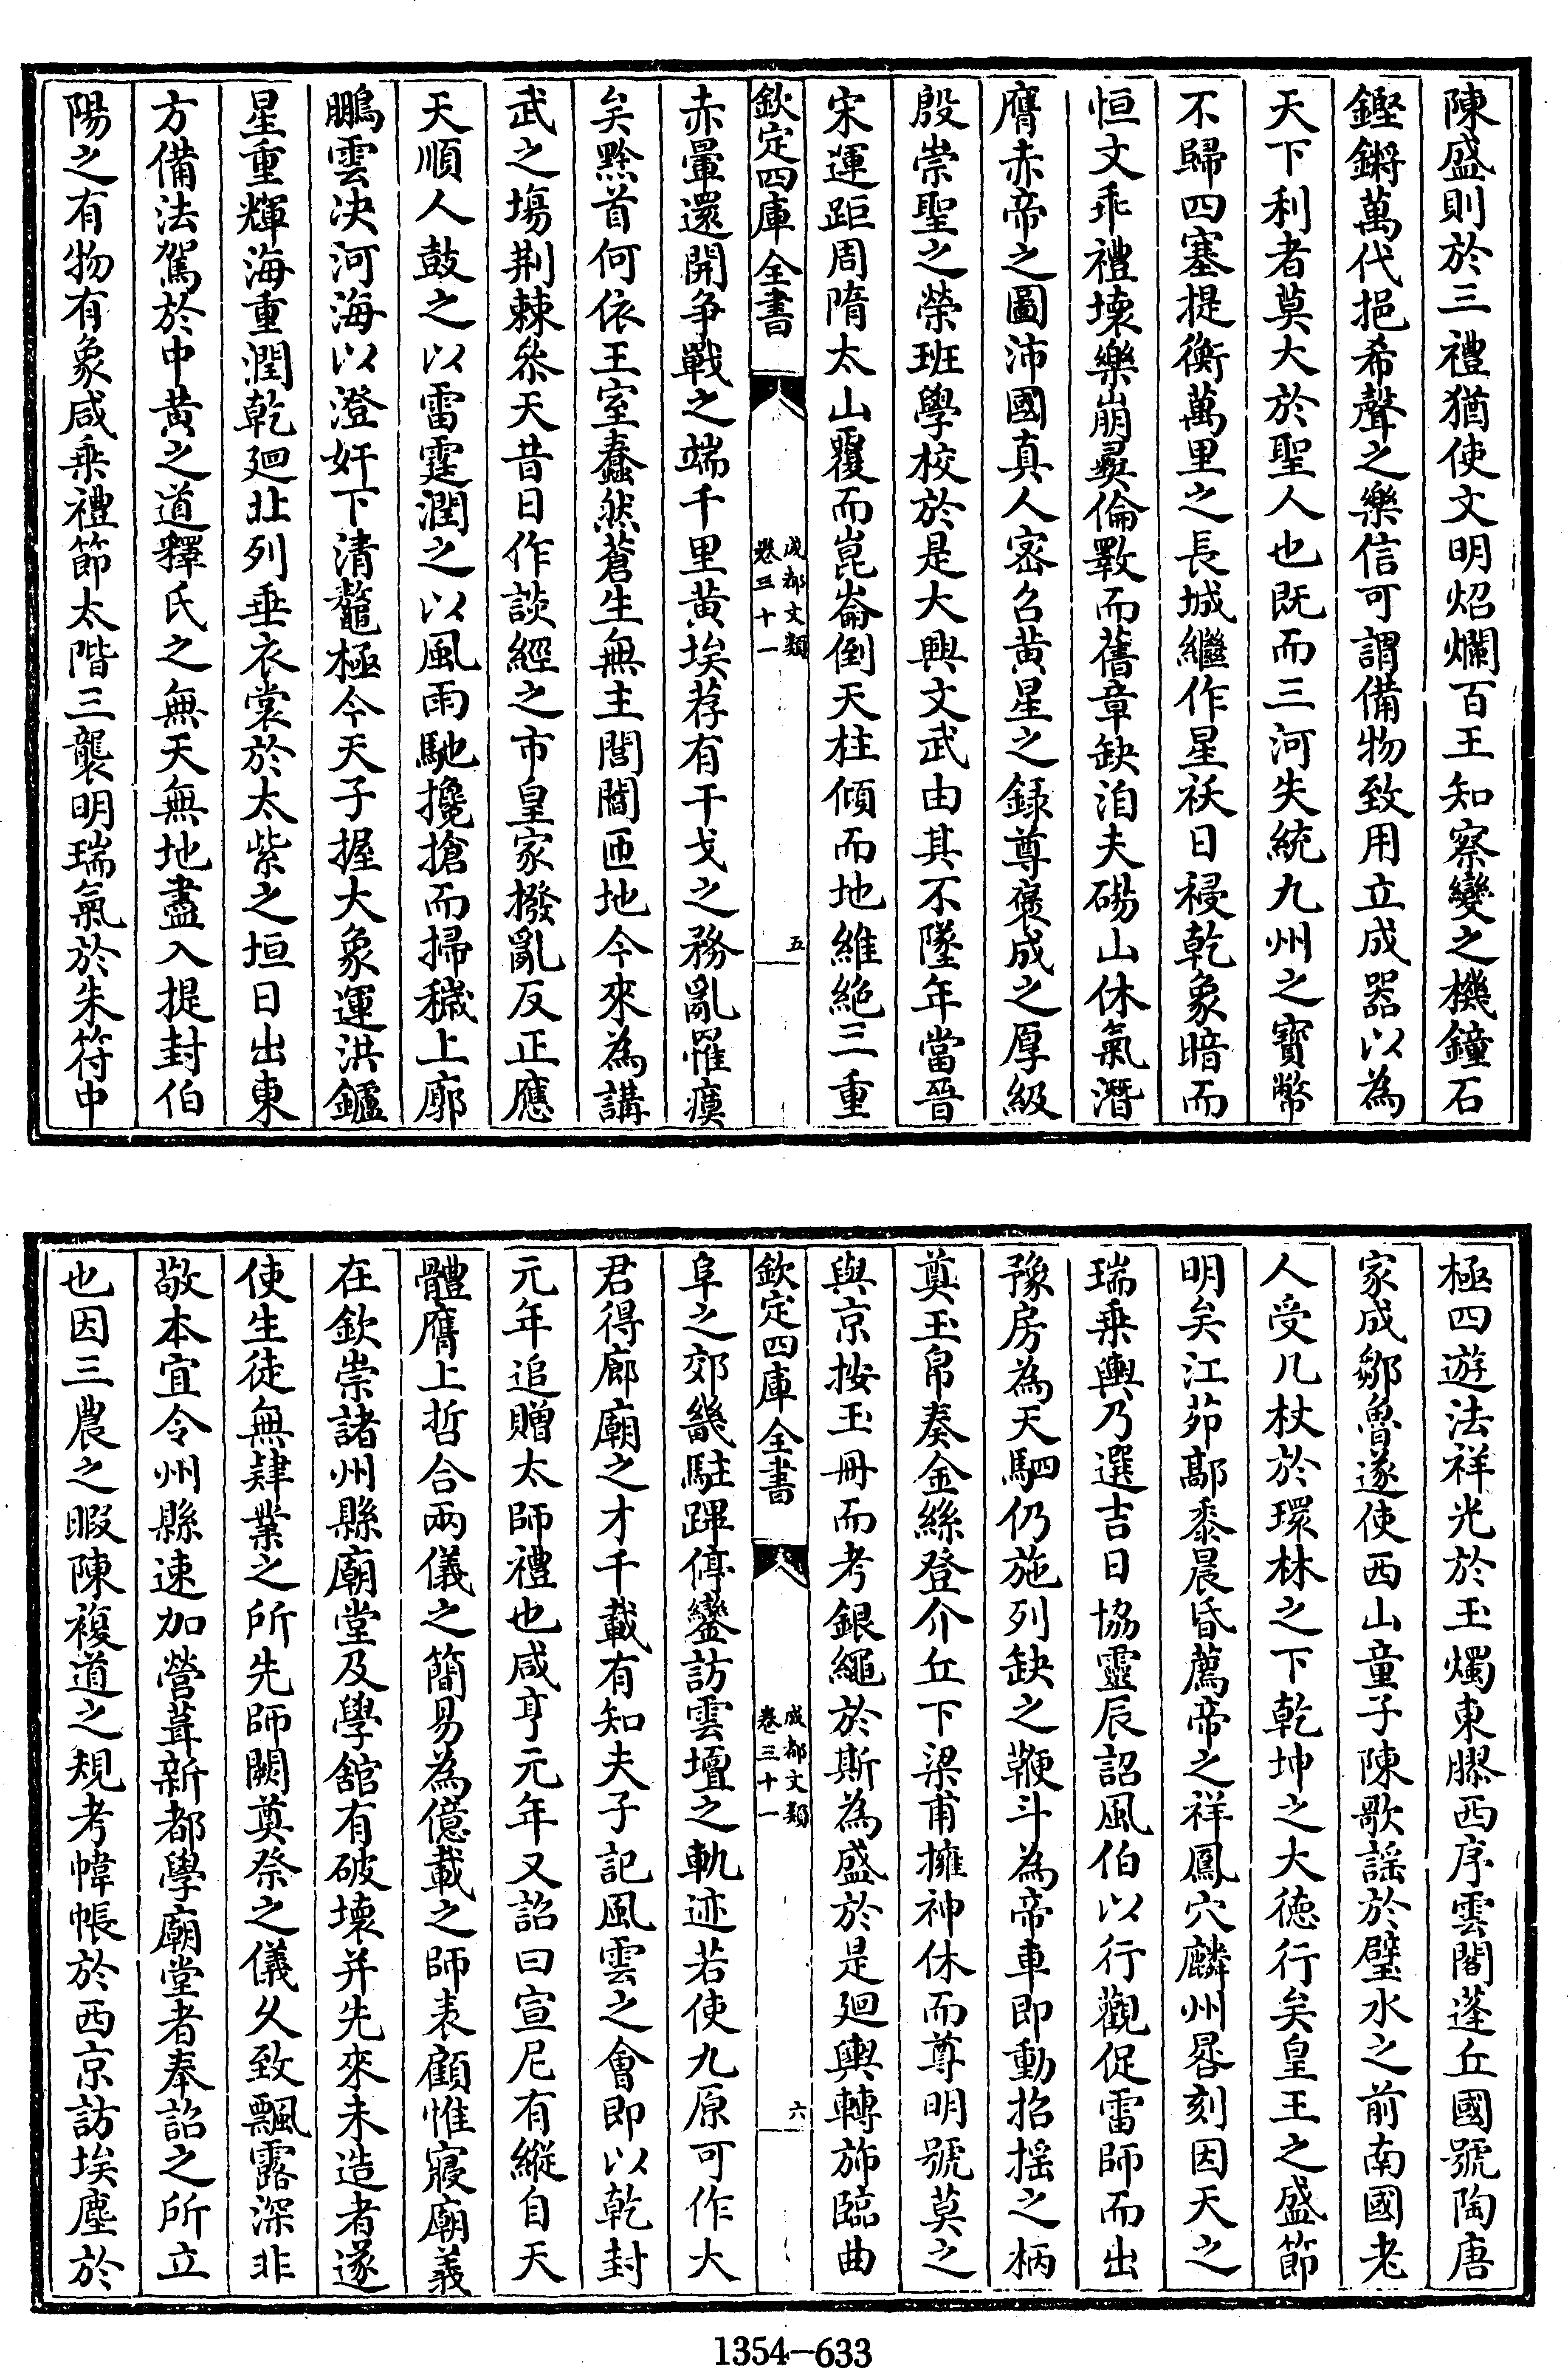 陳盛則於三禮猶使文明炤爛百王知察變之機鐘石
鏗鏘萬代挹希聲之樂信可謂備物致用立成器以為
天下利者莫大於聖人也既而三河失統九州之寶幣
不歸四塞提衡萬里之長城繼作星祅日祲乾象暗而
恒文乖禮壞樂崩彛倫斁而舊章缺洎夫碭山休氣潛
膺赤帝之圖沛國真人密召黄星之録尊褒成之厚級
殷崇聖之榮班學校於是大興文武由其不墜年當晉
宋運距周隋太山覆而崑崙倒天柱傾而地維絶三重
欽定四庫全書
成都文類
卷三十一
五
赤暈還開爭戰之端千里黄埃荐有干戈之務亂罹瘼
矣黔首何依王室蠢然蒼生無主閭閻匝地今來為講
武之塲荆棘叅天昔日作談經之市皇家撥亂反正應
天順人鼓之以雷霆潤之以風雨馳攙搶而掃穢上廓
鵬雲决河海以澄奸下清鼇極今天子握大象運洪鑪
星重輝海重潤乾廻北列垂衣裳於太紫之垣日出東
方備法駕於中黄之道釋氏之無天無地盡入提封伯
陽之有物有象咸乗禮節太階三襲明瑞氣於朱符中
極四遊法祥光於玉燭東膠西序雲閣蓬丘國號陶唐
家成鄒魯遂使西山童子陳歌謡於璧水之前南國老
人受几杖於環林之下乾坤之大徳行矣皇王之盛節
明矣江茆鄗黍晨昏薦帝之祥鳳穴麟州晷刻因天之
瑞乗輿乃選吉日協靈辰詔風伯以行觀促雷師而出
豫房為天駟仍施列缺之鞭斗為帝車即動招揺之柄
奠玉帛奏金絲登介丘下梁甫擁神休而尊明號莫之
與京按玉冊而考銀繩於斯為盛於是廻輿轉斾臨曲
欽定四庫全書
成都文類
卷三十一
六
阜之郊畿駐蹕停鑾訪雲壇之軌迹若使九原可作大
君得廊廟之才千載有知夫子記風雲之會即以乾封
元年追贈太師禮也咸亨元年又詔曰宣尼有縱自天
體膺上哲合兩儀之簡易為億載之師表顧惟寢廟義
在欽崇諸州縣廟堂及學舘有破壞并先來未造者遂
使生徒無肄業之所先師闕奠祭之儀久致飄露深非
敬本宜令州縣速加營葺新都學廟堂者奉詔之所立
也因三農之暇陳複道之規考幃帳於西京訪埃塵於
1354-633